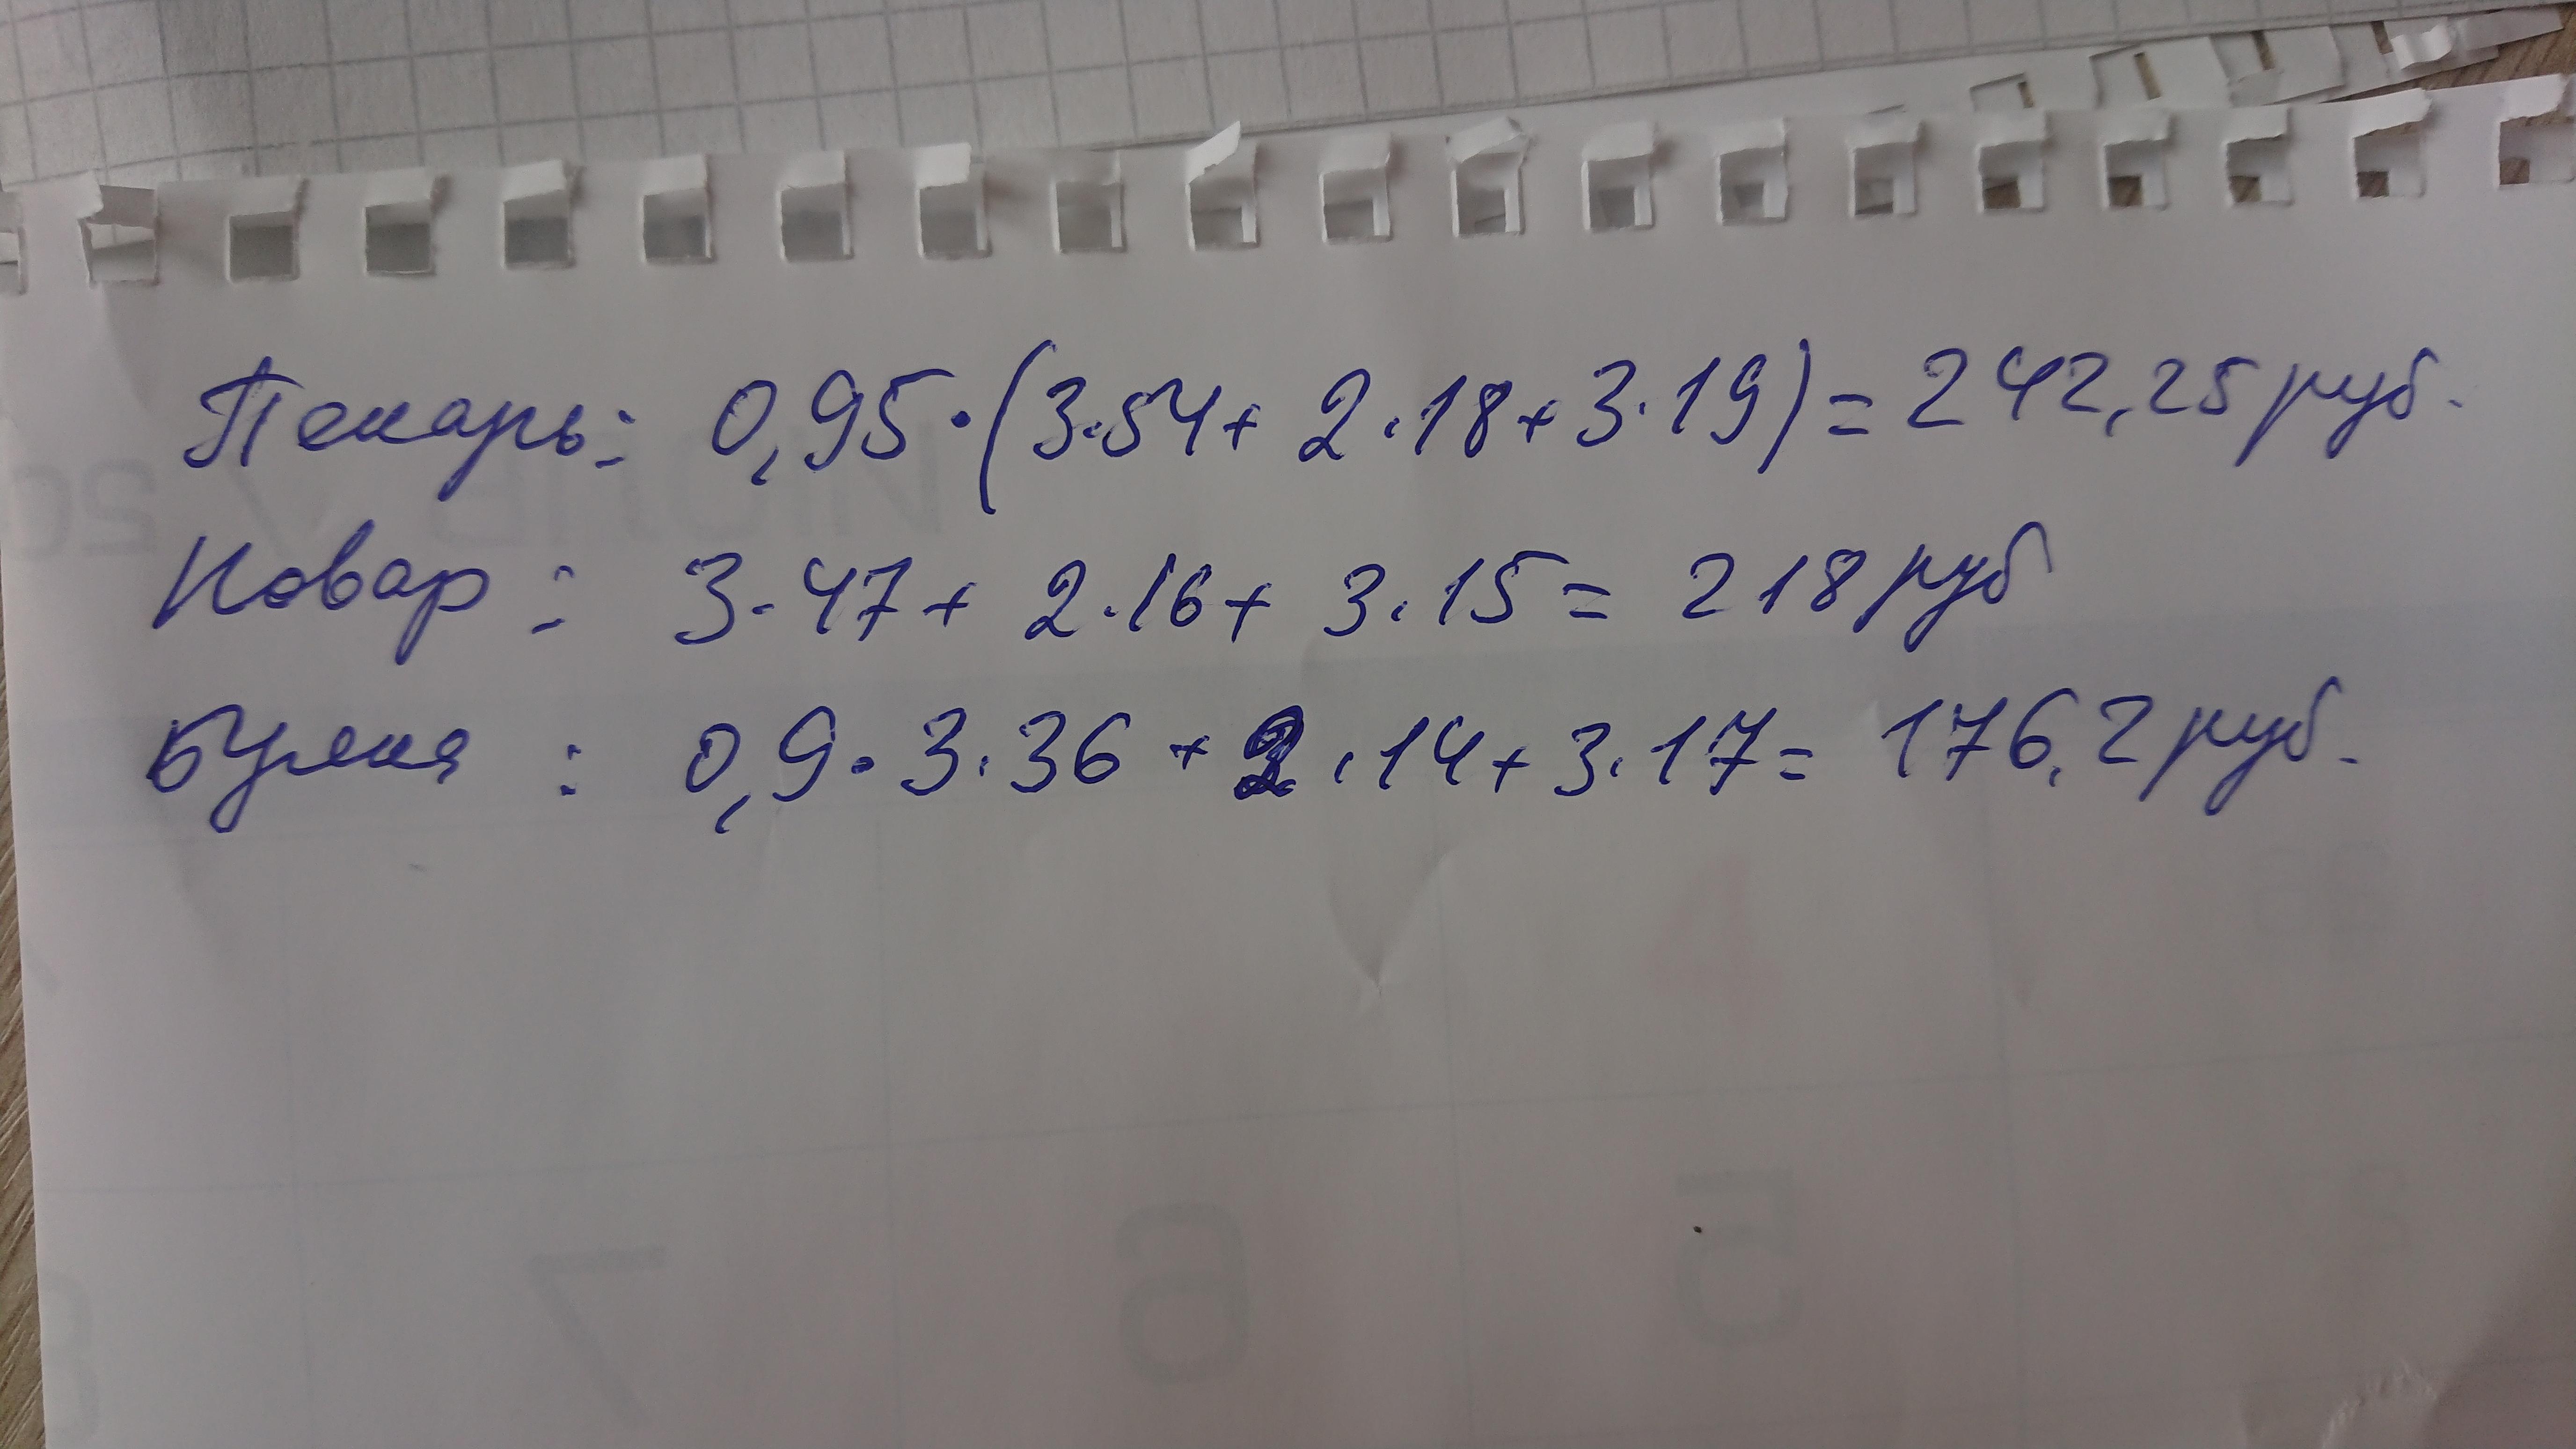 Пекарь: 0,95·(3·54+ 2·18+3·19)=242,25 руб.
Повар: 3·47+ 2·16+ 3·15= 218 руб
Булка : 0,9·3·36 + 2·14+3·17= 176,2 руб.
7 6 5